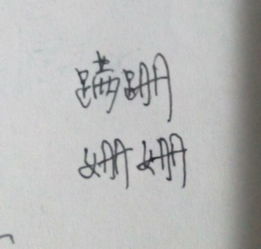 蹒跚
姗姗